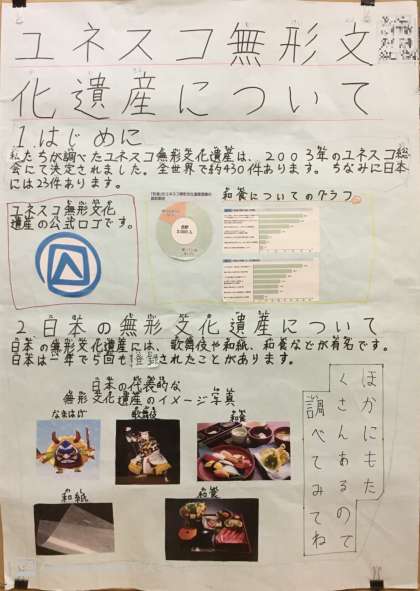 ユネスコ無形文
化遺産について
1.はじめに
私たちが調べたユネスコ無形文化遺産は、2003年のユネスコ総
会にて決定されました。全世界で約430件あります。ちなみに日本
には23件あります。
ユネスコ無形文化
遺産の公式ロゴです。
和食についてのグラフ
2.日本の無形文化遺産について
日本の無形文化遺産には、歌舞伎や和紙、和食などが有名です。
日本は一年で5回も登録されたことがあります。
日本の代表的な
無形文化遺産のイメージ写真
なまはげ
歌舞伎
和食
和紙
和食
ほかにもた
くさんあるので
調べてみてね